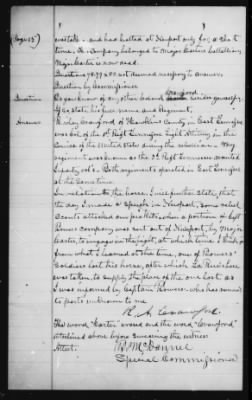 (Page 25)
8
overtake, and has halted at Newport only for a short
time. The Company belonged to Major Carters battallion
Major Carter is now dead.
Questions 78.79 & 80 not deemed necessary to answer.
Question by Commissioner
Question Do you know of any other Federal
Crawford
officer, state his full name and regiment,
Answer R. A. Crawford of Hawkins County in East Tennessee
was Col of the 1st Regt Tennessee Light Artillery in the
Service of the United States during the rebellion. My
regiment was known as the 1st Regt Tennessee mounted
Infantry vols. Both regiments operated in East Tennessee
at the same time.
In relation to the horse, I will further state, that
the day I made a speech in Newport, some rebel
Scouts attacked our pickets, when a portion of Capt
Powers company was sent out of Newport, by Major
Carter, to engage in the fight, at which time I think
from what I learned at the time, one of Powers'
Soldiers lost his horse, after which
was taken, to supply the place of the one lost as
I was informed by Captain Powers, who has removed
to parts unknown to me.
R. A. Crawford.
The word "Carter" erased and the word "Crawford"
interlined above before
Attest. 
Special Commissioner